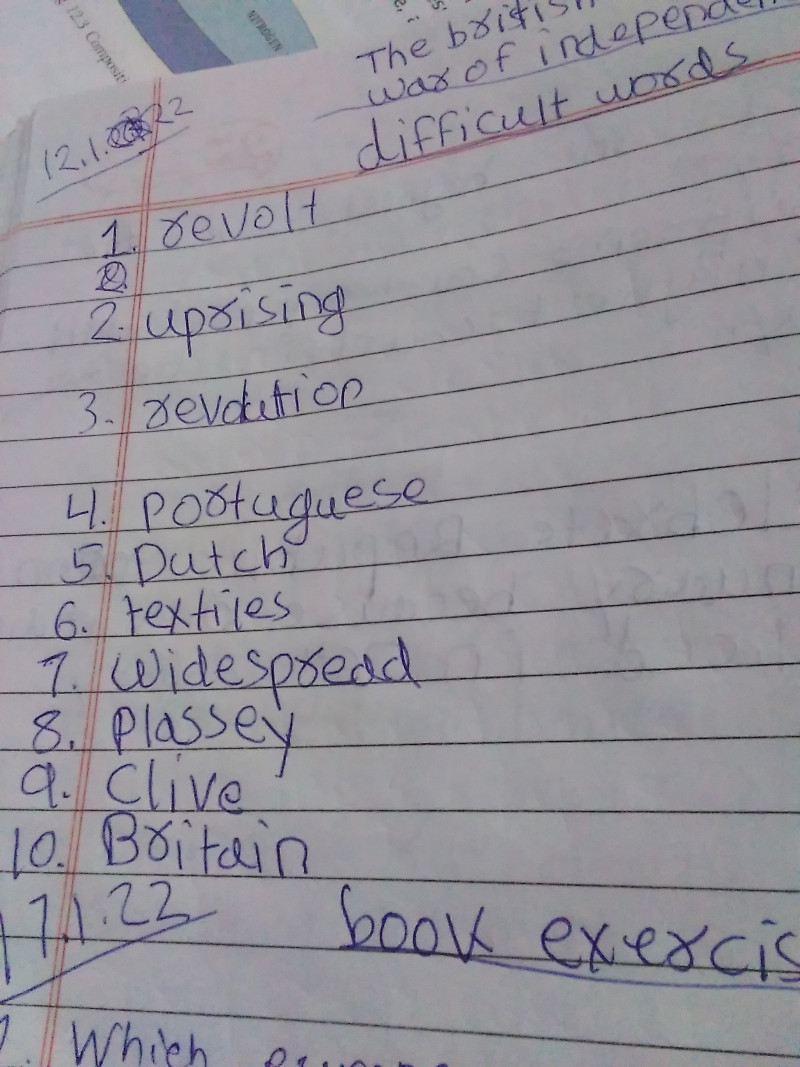 12.3 Composit
NITROGEN
The british
war of independen
difficult words
12.1.22
1. revolt
2. uprising
3. revolution
4. portuguese
5. Dutch
6. textiles
7. widespread
8. plassey
9. Clive
10. Britain
17.1.22
book exercis
Which